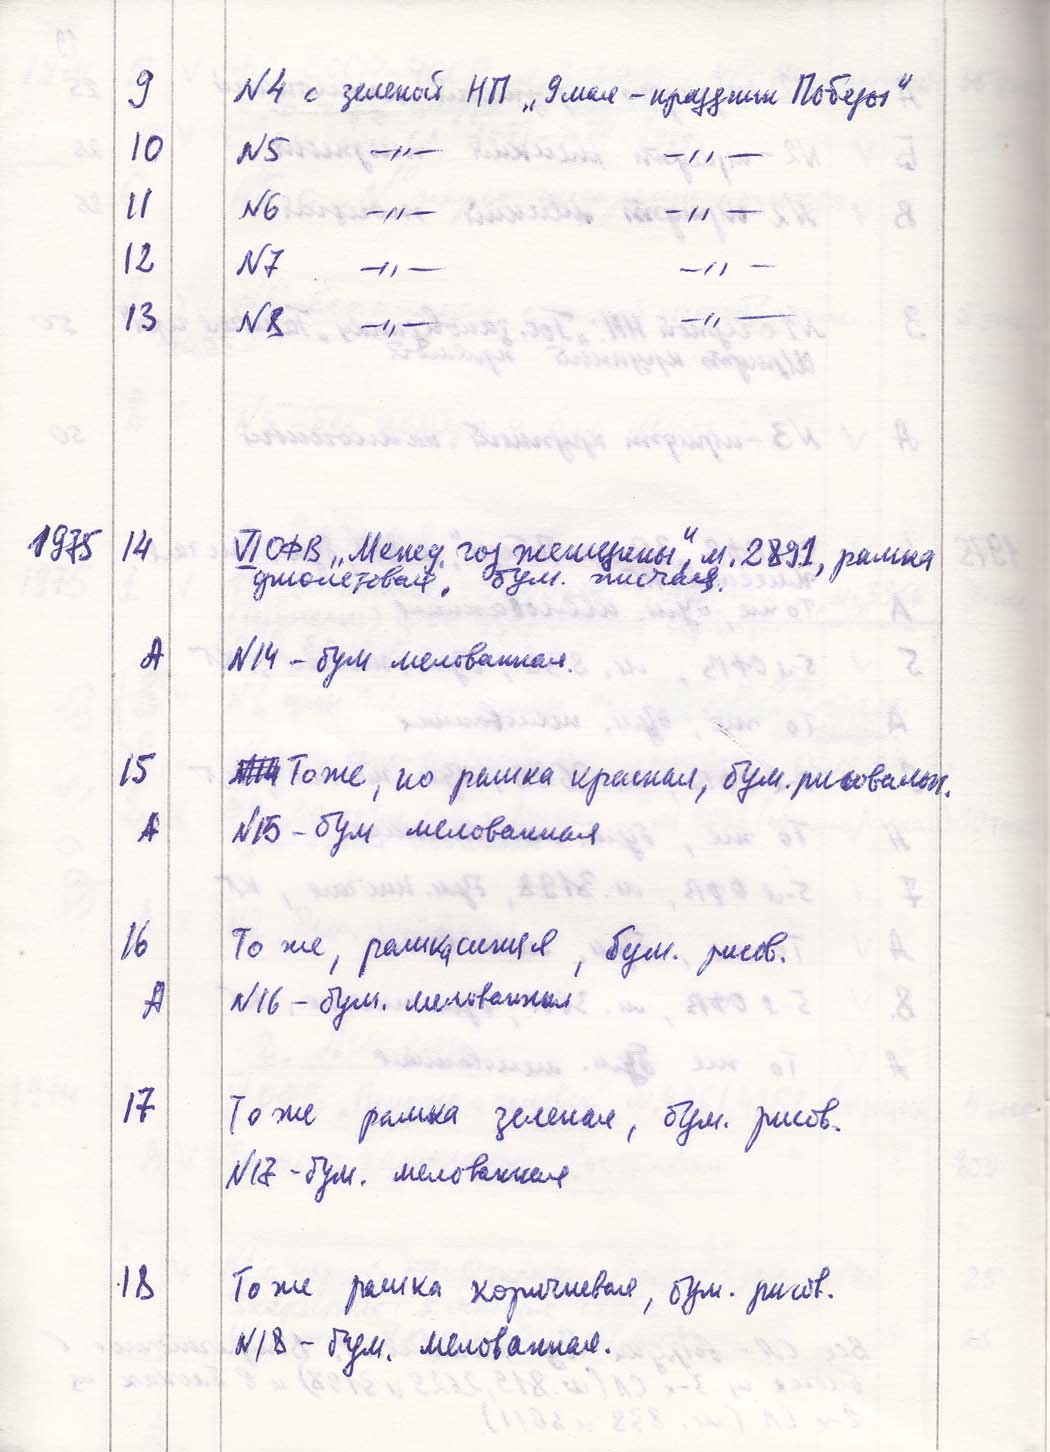 9 N4 с зеленой НП „9 мая – праздник Победы"
10 N5 —"— —"—
11 N6 —"— —"—
12 N7 —"— —"—
13 N8 —"— —"—
1975 14 VI ОФВ „Межд. год женщины", м. 2891, рамка
фиолетовая, бум. писчая.
А N14 – бум мелованная.
15 То же, но рамка красная, бум. рисовальн.
А N15 – бум мелованная
16 То же, рамка синяя, бум. рисов.
А N16 – бум. мелованная
17 То же рамка зеленая, бум. рисов.
N17 – бум. мелованная
18 То же рамка коричневая, бум. рисов.
N18 – бум. мелованная.